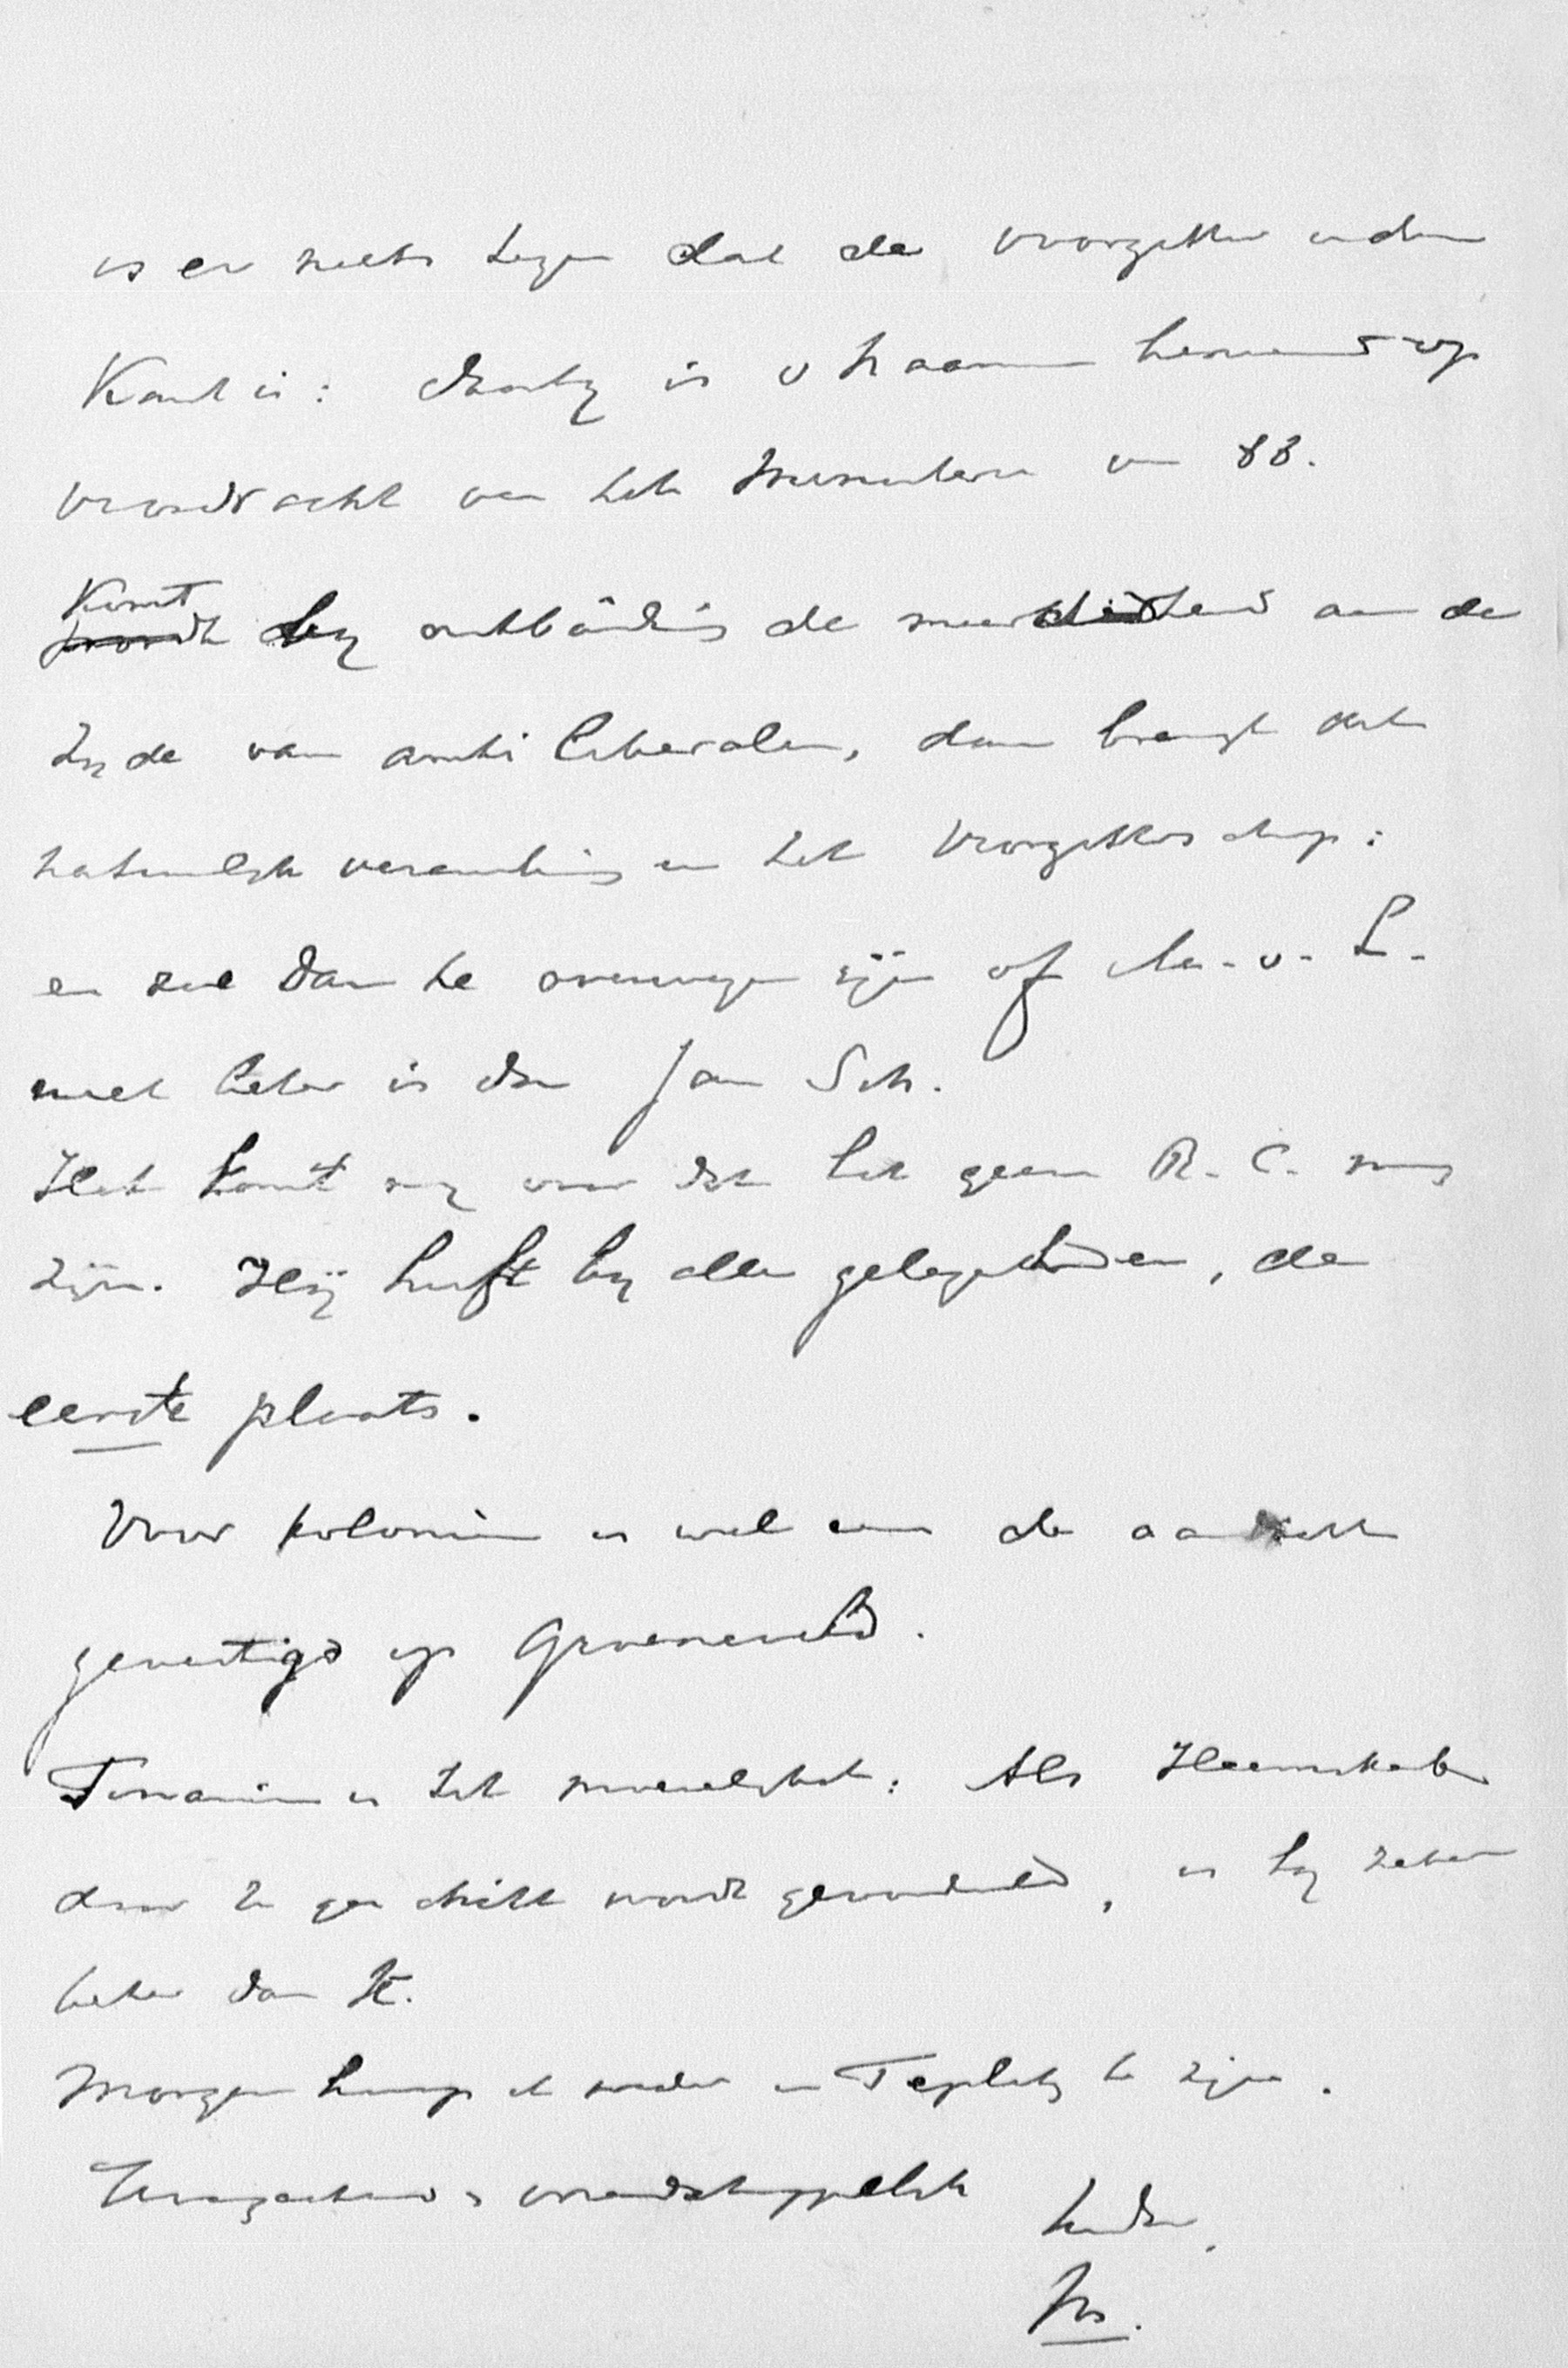 is er niets tegen dat de voorzitter
Kant is: daarbij is v Naamen benoemd op
voordracht van het Ministerie van 88.
Komt bij ontbinding de meerderheid aan de
zyde van anti liberalen, dan brengt dat
natuurlijk verandering in het voorzitterschap:
en zal dan te overwegen zijn of v. L.
niet beter is dan Jan Sch.
Het komt my voor dat het geen R. C. mag
zijn. Hij heeft by alle gelegenheden, de
eerste plaats.
Voor koloniën is wel eens de aandacht
gevestigd op Groeneveld.
Financiën is het moeielykst: Als Heemskerk
door U geschikt wordt geoordeeld, is hy zeker
beter dan K.
Morgen hoop ik weder in Teplitz te zijn.
Hoogachtend & vriendschappelyk